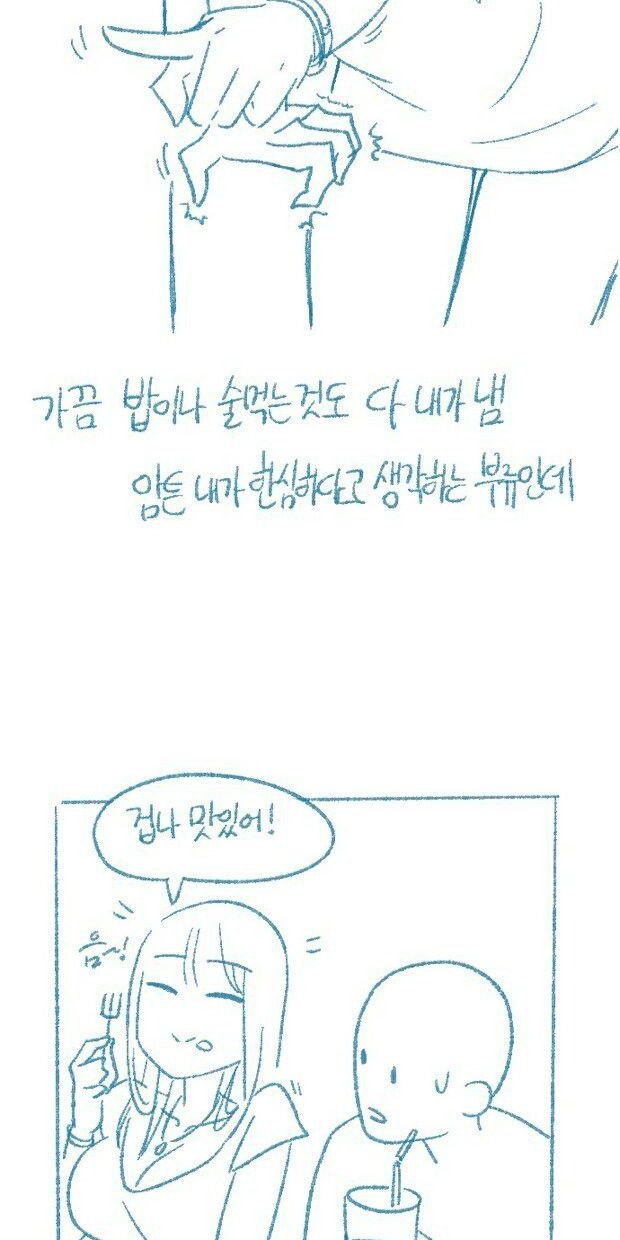 가끔 밥이나 술먹는것도 다 내가 냄
암튼 내가 한심하다고 생각하는 부류인데
겁나 맛있어!
음~!